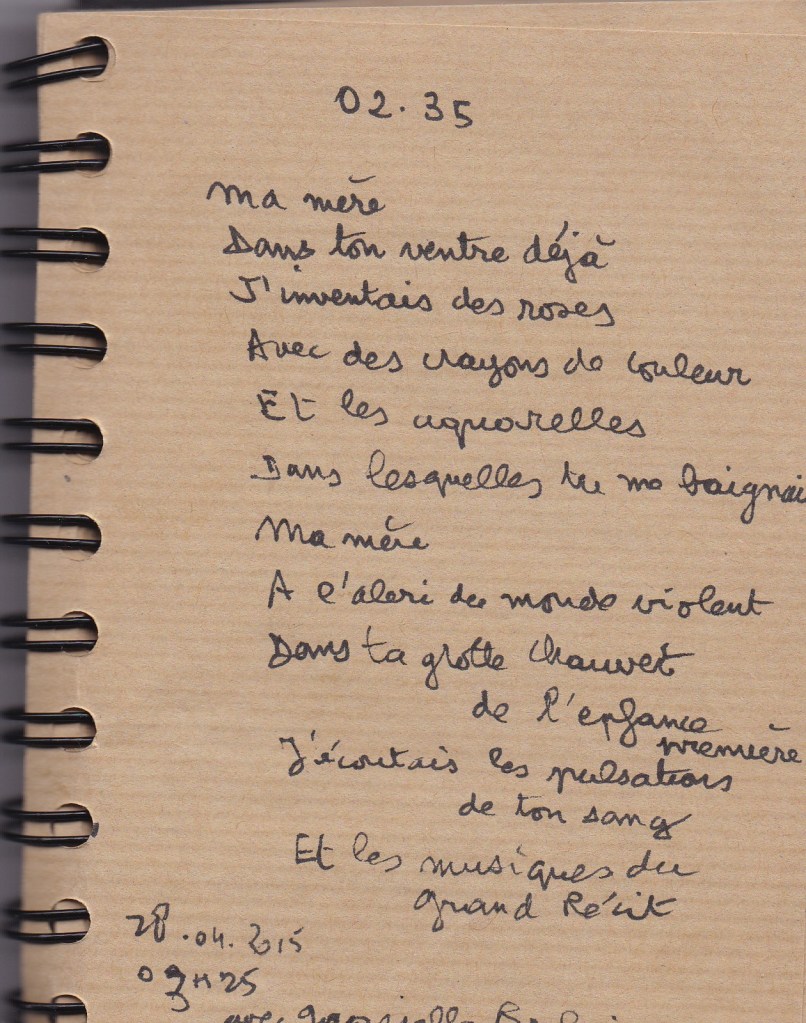 02.35
Ma mère
Dans ton ventre déjà
J'inventais des roses
Avec des crayons de couleur
Et les aquarelles
Dans lesquelles tu me baignai
Ma mère
A l'abri du monde violent
Dans ta grotte Chauvet
de l'enfance
première
J'écoutais les pulsations
de ton sang
Et les musiques du
grand Récit
28.04.2015
03H25
avec